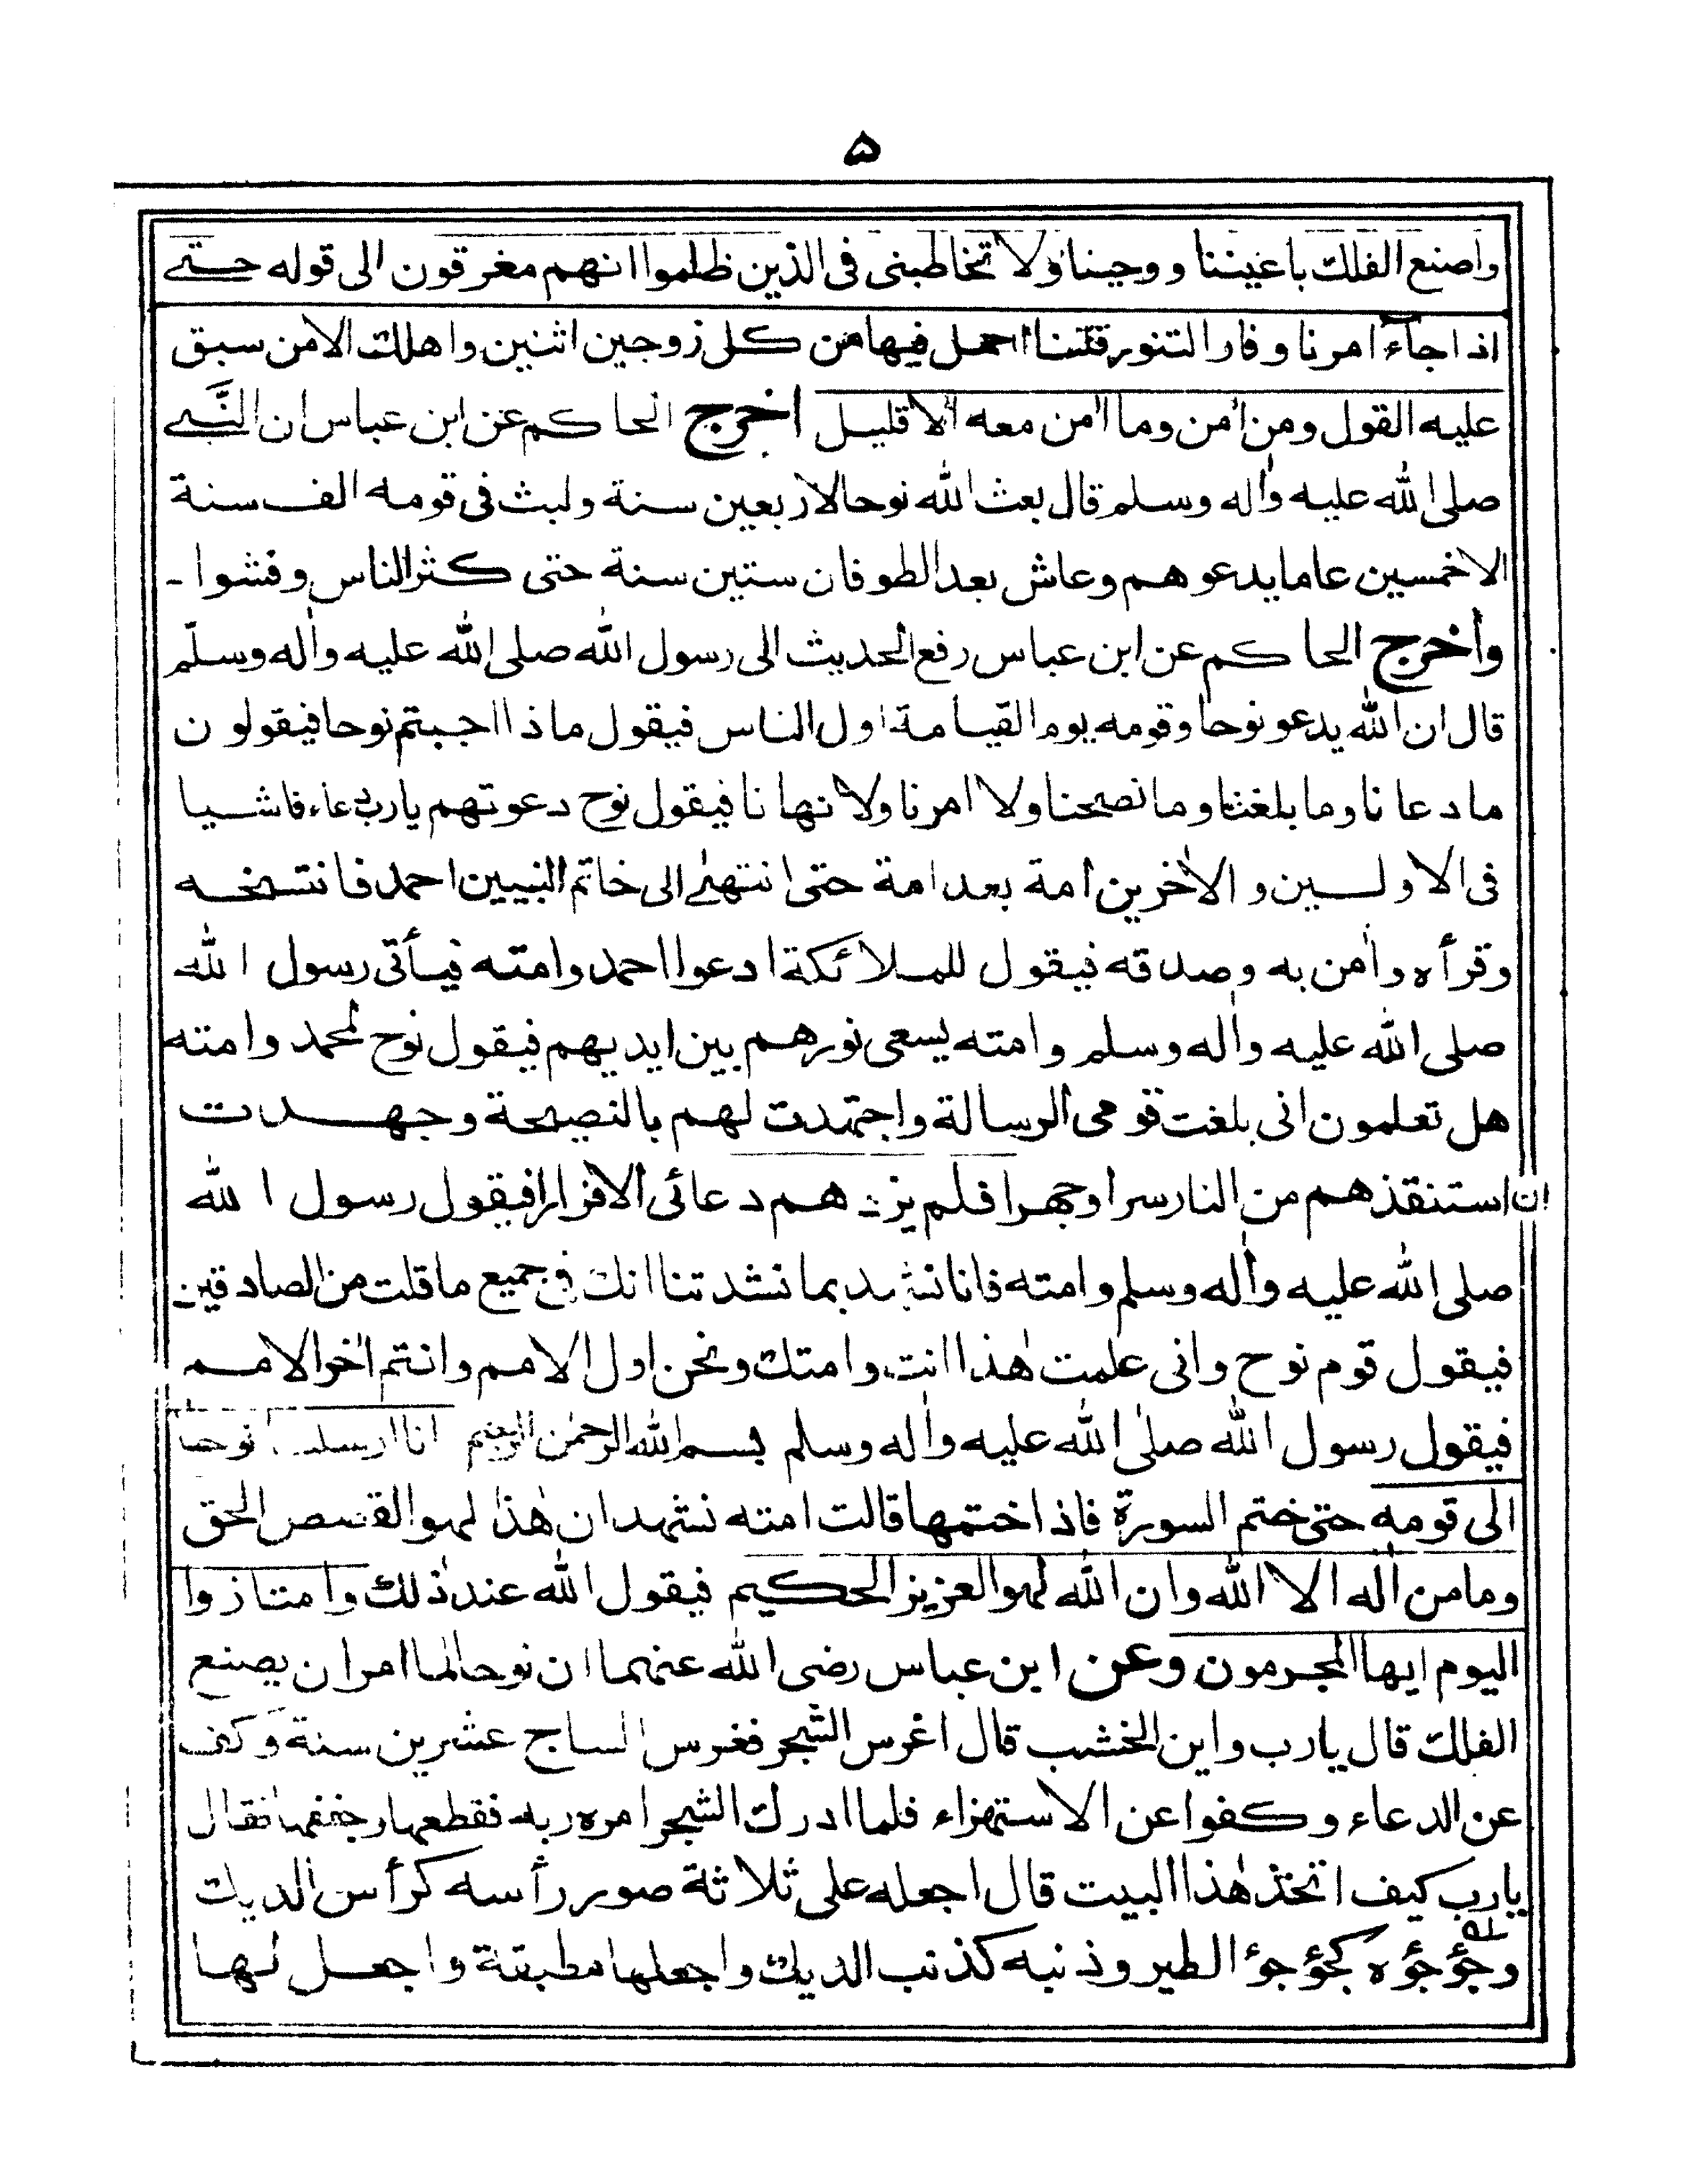 ۵
واصنع الفلك باعيننا ووحينا ولا تخاطبنى فى الذين ظلموا انهم مغرقون الى قوله حتى
اذا جاء امرنا وفار التنور قلنا احمل فيها من كل زوجين اثنين واهلك الا من سبق
عليه القول ومن اٰمن وما اٰمن معه الا قليل اخرج الحاكم عن ابن عباس ان النَّبى
صلى الله عليه واٰله وسلم قال بعث الله نوحا لاربعين سنة ولبث فى قومه الف سنة
الا خمسين عاما يدعوهم وعاش بعد الطوفان ستين سنة حتى كثر الناس وفشوا -
وأخرج الحاكم عن ابن عباس رفع الحديث الى رسول الله صلى الله عليه واٰله وسلّم
قال ان الله يدعو نوحا وقومه يوم القيامة اول الناس فيقول ماذا اجبتم نوحا فيقولون
ما دعانا وما بلغنا وما نصحنا ولا امرنا ولا نهانا فيقول نوح دعوتهم يارب دعاء فاشيا
فى الاولين والاٰخرين امة بعد امة حتى انتهىٰ الى خاتم النبيين احمد فانتسخه
وقرأه واٰمن به وصدقه فيقول للملائكة ادعوا احمد وامته فيأتى رسول الله
صلى الله عليه واٰله وسلم وامته يسعى نورهم بين ايديهم فيقول نوح لمحمد وامته
هل تعلمون انى بلغت قومى الرسالة واجتهدت لهم بالنصيحة وجهدت
ان استنقذهم من النار سرا وجهرا فلم يزدهم دعائى الا فرارا فيقول رسول الله
صلى الله عليه واٰله وسلم وامته فانا نشهد بما نشدتنا انك فى جميع ما قلت من الصادقين
فيقول قوم نوح وانى علمت هٰذا انت وامتك ونحن اول الامم وانتم اٰخر الامم
فيقول رسول الله صلىٰ الله عليه واٰله وسلم بسم الله الرحمٰن الرحيم انا ارسلنا نوحا
الى قومه حتى ختم السورة فاذا ختمها قالت امته نشهد ان هٰذا لهو القصص الحق
وما من اٰله الا الله وان الله لهو العزيز الحكيم فيقول الله عند ذٰلك وامتازوا
اليوم ايها المجرمون وعن ابن عباس رضى الله عنهما ان نوحا لما امر ان يصنع
الفلك قال يارب واين الخشب قال اغرس الشجر فغرس الساج عشرين سنة وكف
عن الدعاء وكفوا عن الاستهزاء فلما ادرك الشجر امره ربه فقطعها وجففها فقال
يارب كيف اتخذ هٰذا البيت قال اجعله على ثلاثة صور رأسه كرأس الديك
وجؤجؤه كجؤجؤ الطير وذنبه كذنب الديك واجعلها مطبقة واجعل لها